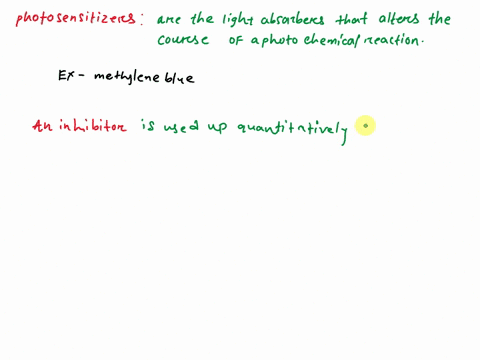 photosensitizers: are the light absorbers that alters the
course of a photo chemical reaction.
Ex - methylene blue
An inhibitor is used up quantitatively